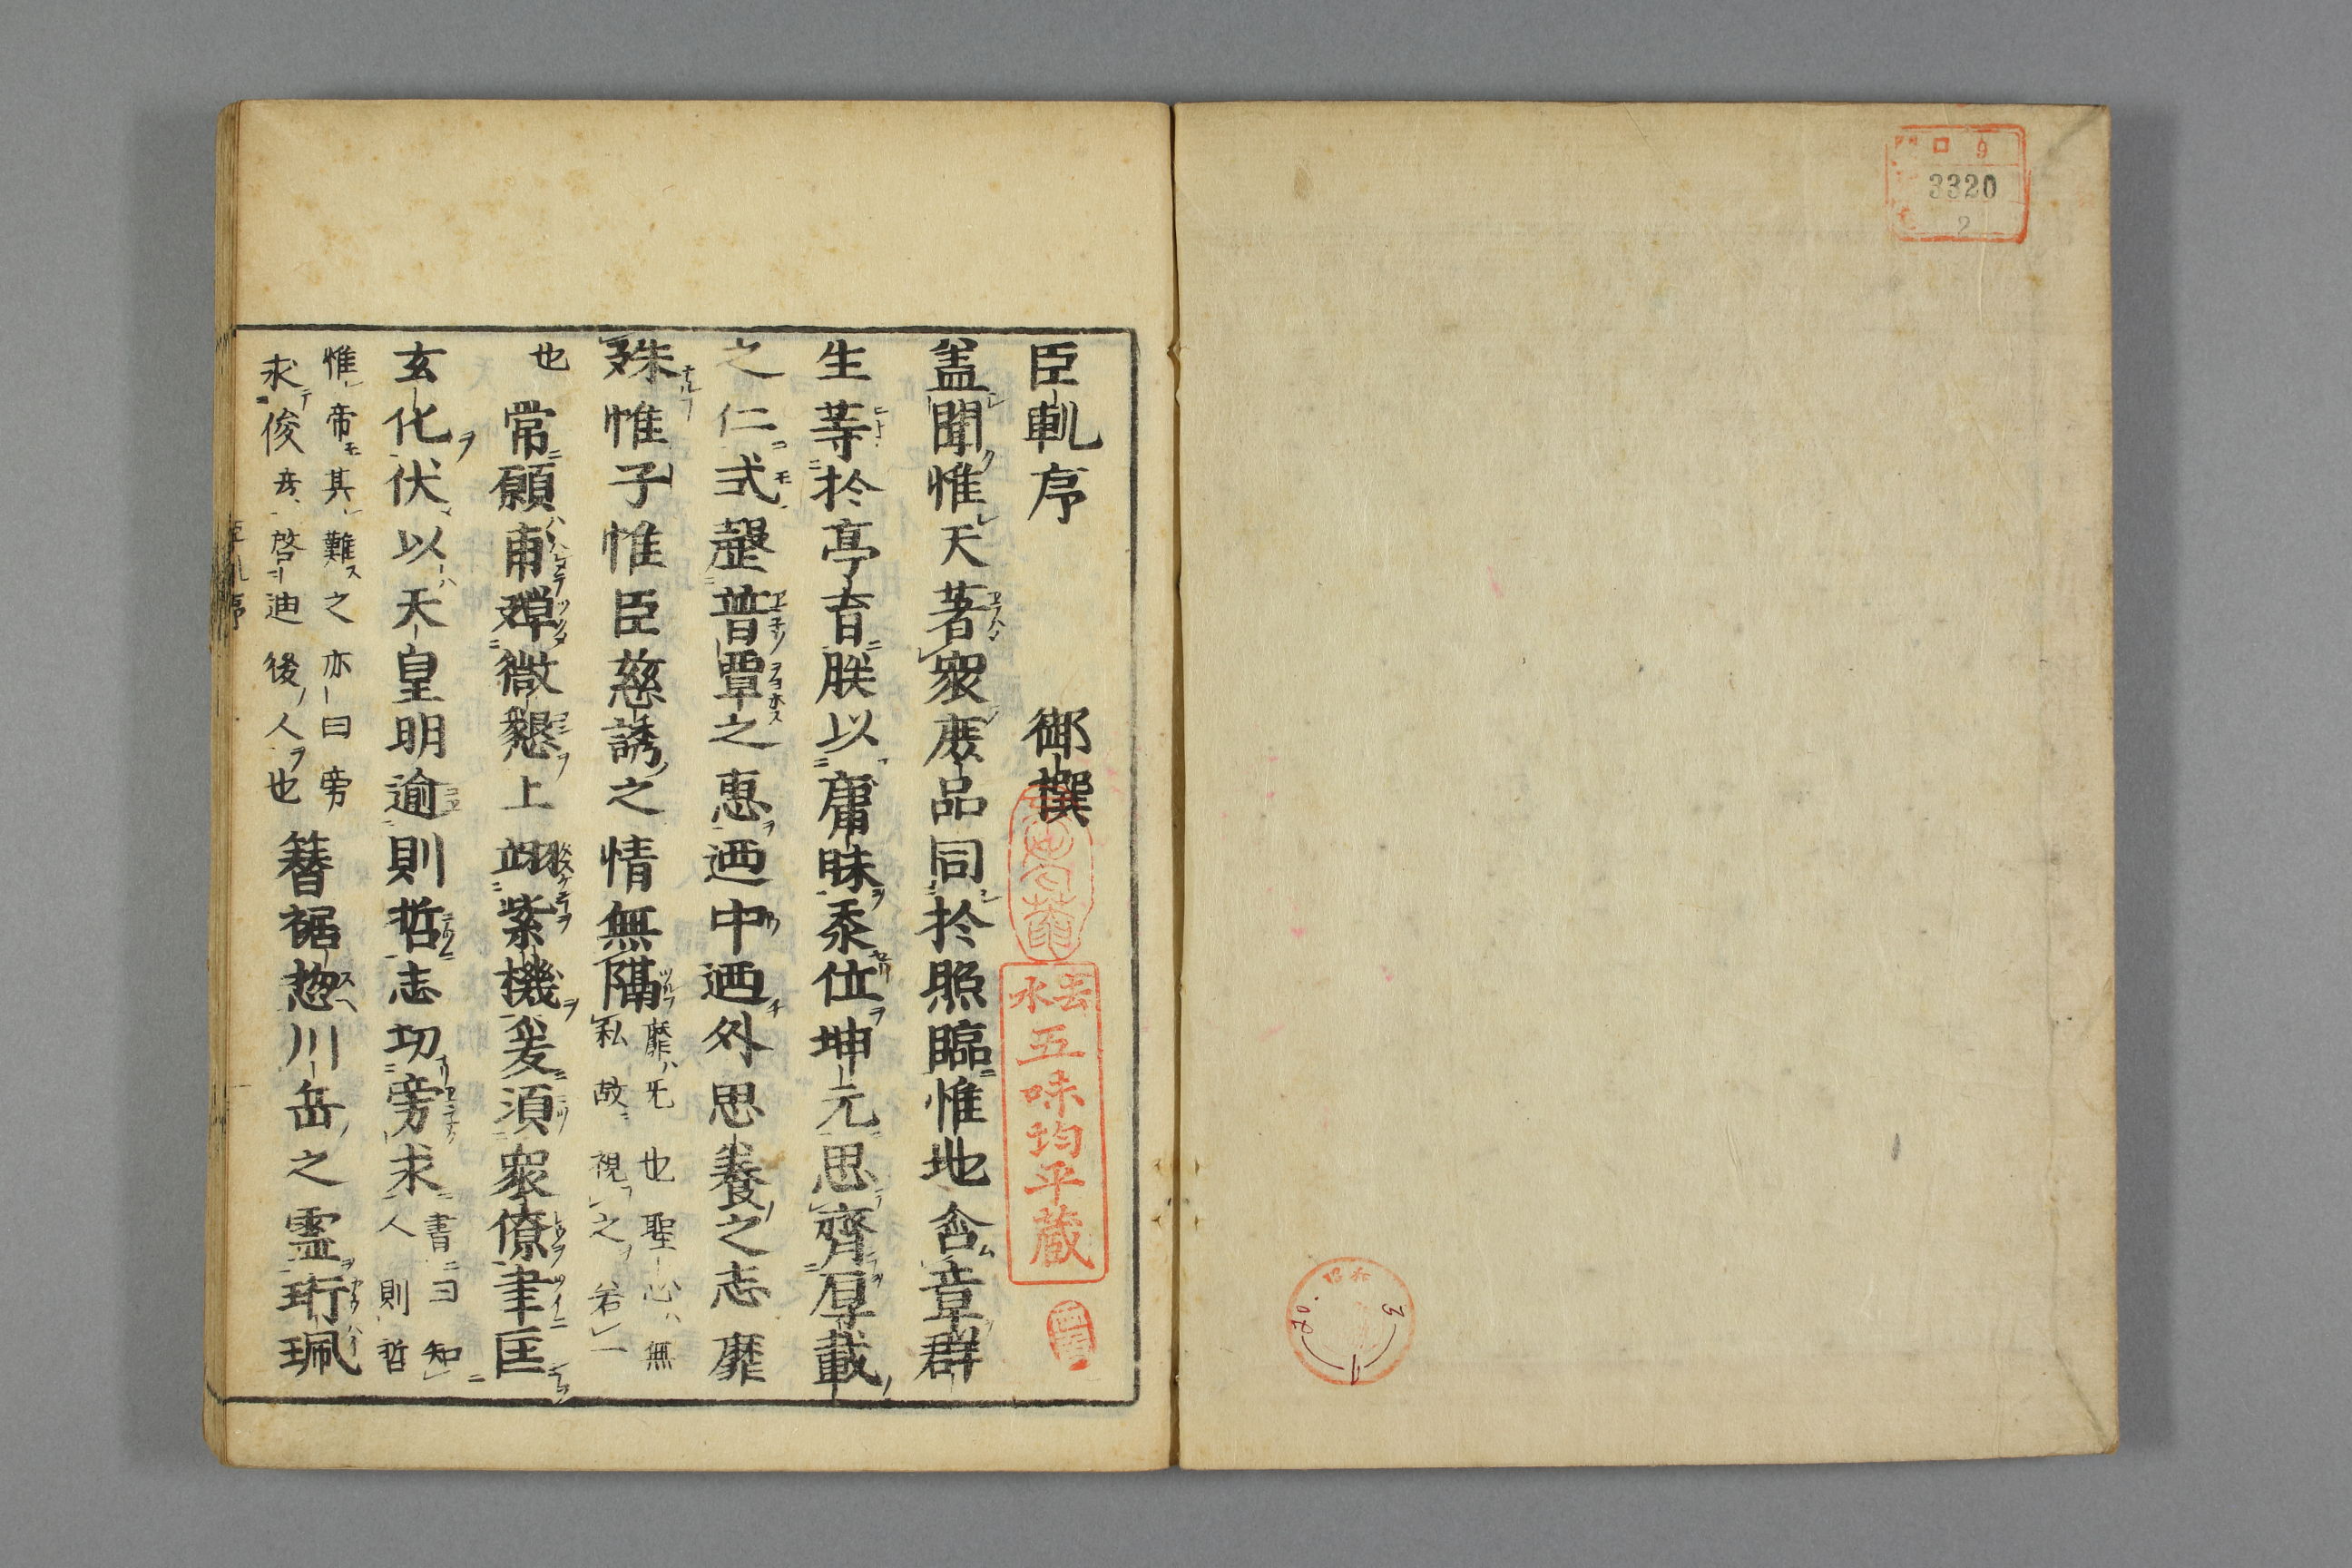 臣軌序
御撰
蓋聞惟天著衆庶品同於照臨惟地含章群
生等於亭育朕以庸昧忝位坤元思齊厚載
之仁式罄普覃之惠迺中迺外思養之志靡
殊惟子惟臣慈誘之情無隔
靡ハ旡也聖心ハ無
私故視之若一
也
常願甫殫微懇上翊紫機爰須衆僚聿匡
玄化伏以天皇明逾則哲志切旁求
書曰知人則哲
惟帝其難之亦曰旁
求俊彦啓迪後人也
簪裾惣川岳之霊珩珮
臣軌序
五味均平蔵
口 9
3320
2